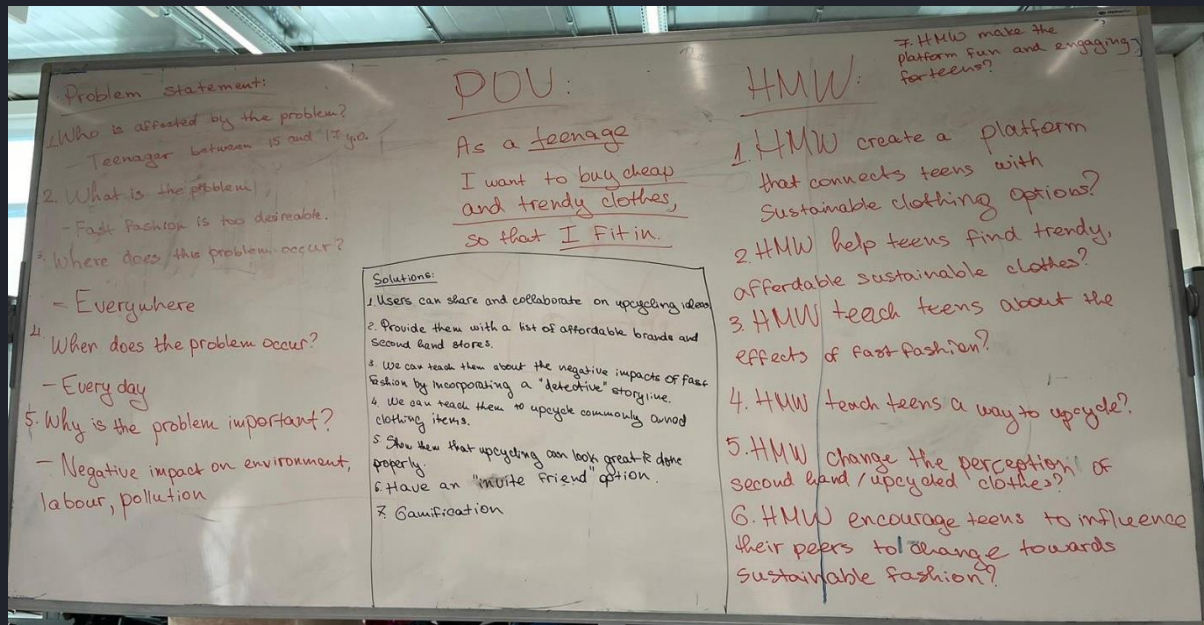 Problem statement:
1. Who is affected by the problem?
- Teenager between 15 and 17 y.o.
2. What is the problem
- Fast Fashion is too desireable.
3. Where does this problem occur?
- Everywhere
4. When does the problem occur?
- Every day
5. Why is the problem important?
- Negative impact on environment,
labour, pollution
POV:
As a teenage
I want to buy cheap
and trendy clothes,
so that I fit in.
Solutions:
1. Users can share and collaborate on upcycling ideas
2. Provide them with a list of affordable brands and
second hand stores.
3. We can teach them about the negative impacts of fast
fashion by incorporating a "detective" storyline.
4. We can teach them to upcycle commonly owned
clothing items.
5. Show them that upcycling can look great if done
properly.
6. Have an "invite friend" option.
7. Gamification
HMW:
1. HMW create a platform
that connects teens with
sustainable clothing options?
2. HMW help teens find trendy,
affordable sustainable clothes?
3. HMW teach teens about the
effects of fast fashion?
4. HMW teach teens a way to upcycle?
5. HMW change the perception of
second hand / upcycled clothes?
6. HMW encourage teens to influence
their peers to change towards
sustainable fashion?
7. HMW make the
platform fun and engaging
for teens?